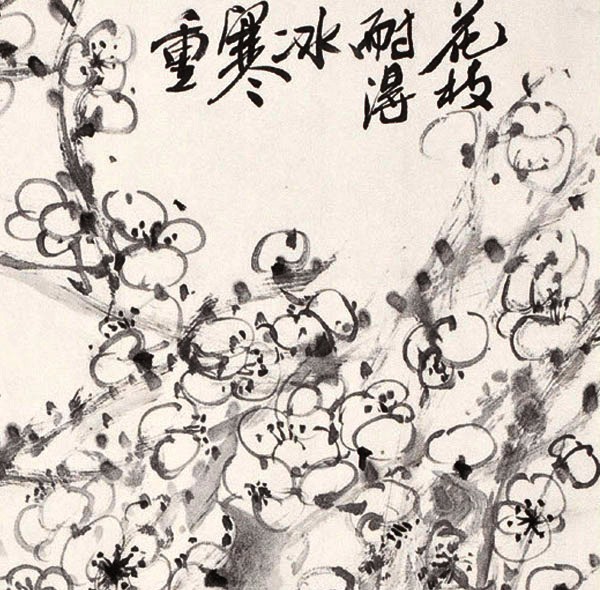 花枝
耐得
冰
寒
重